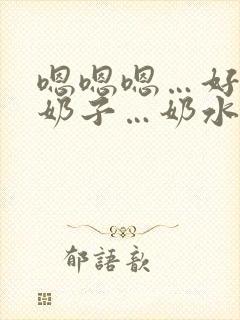 嗯嗯嗯…好
奶子…奶水
郁語歆